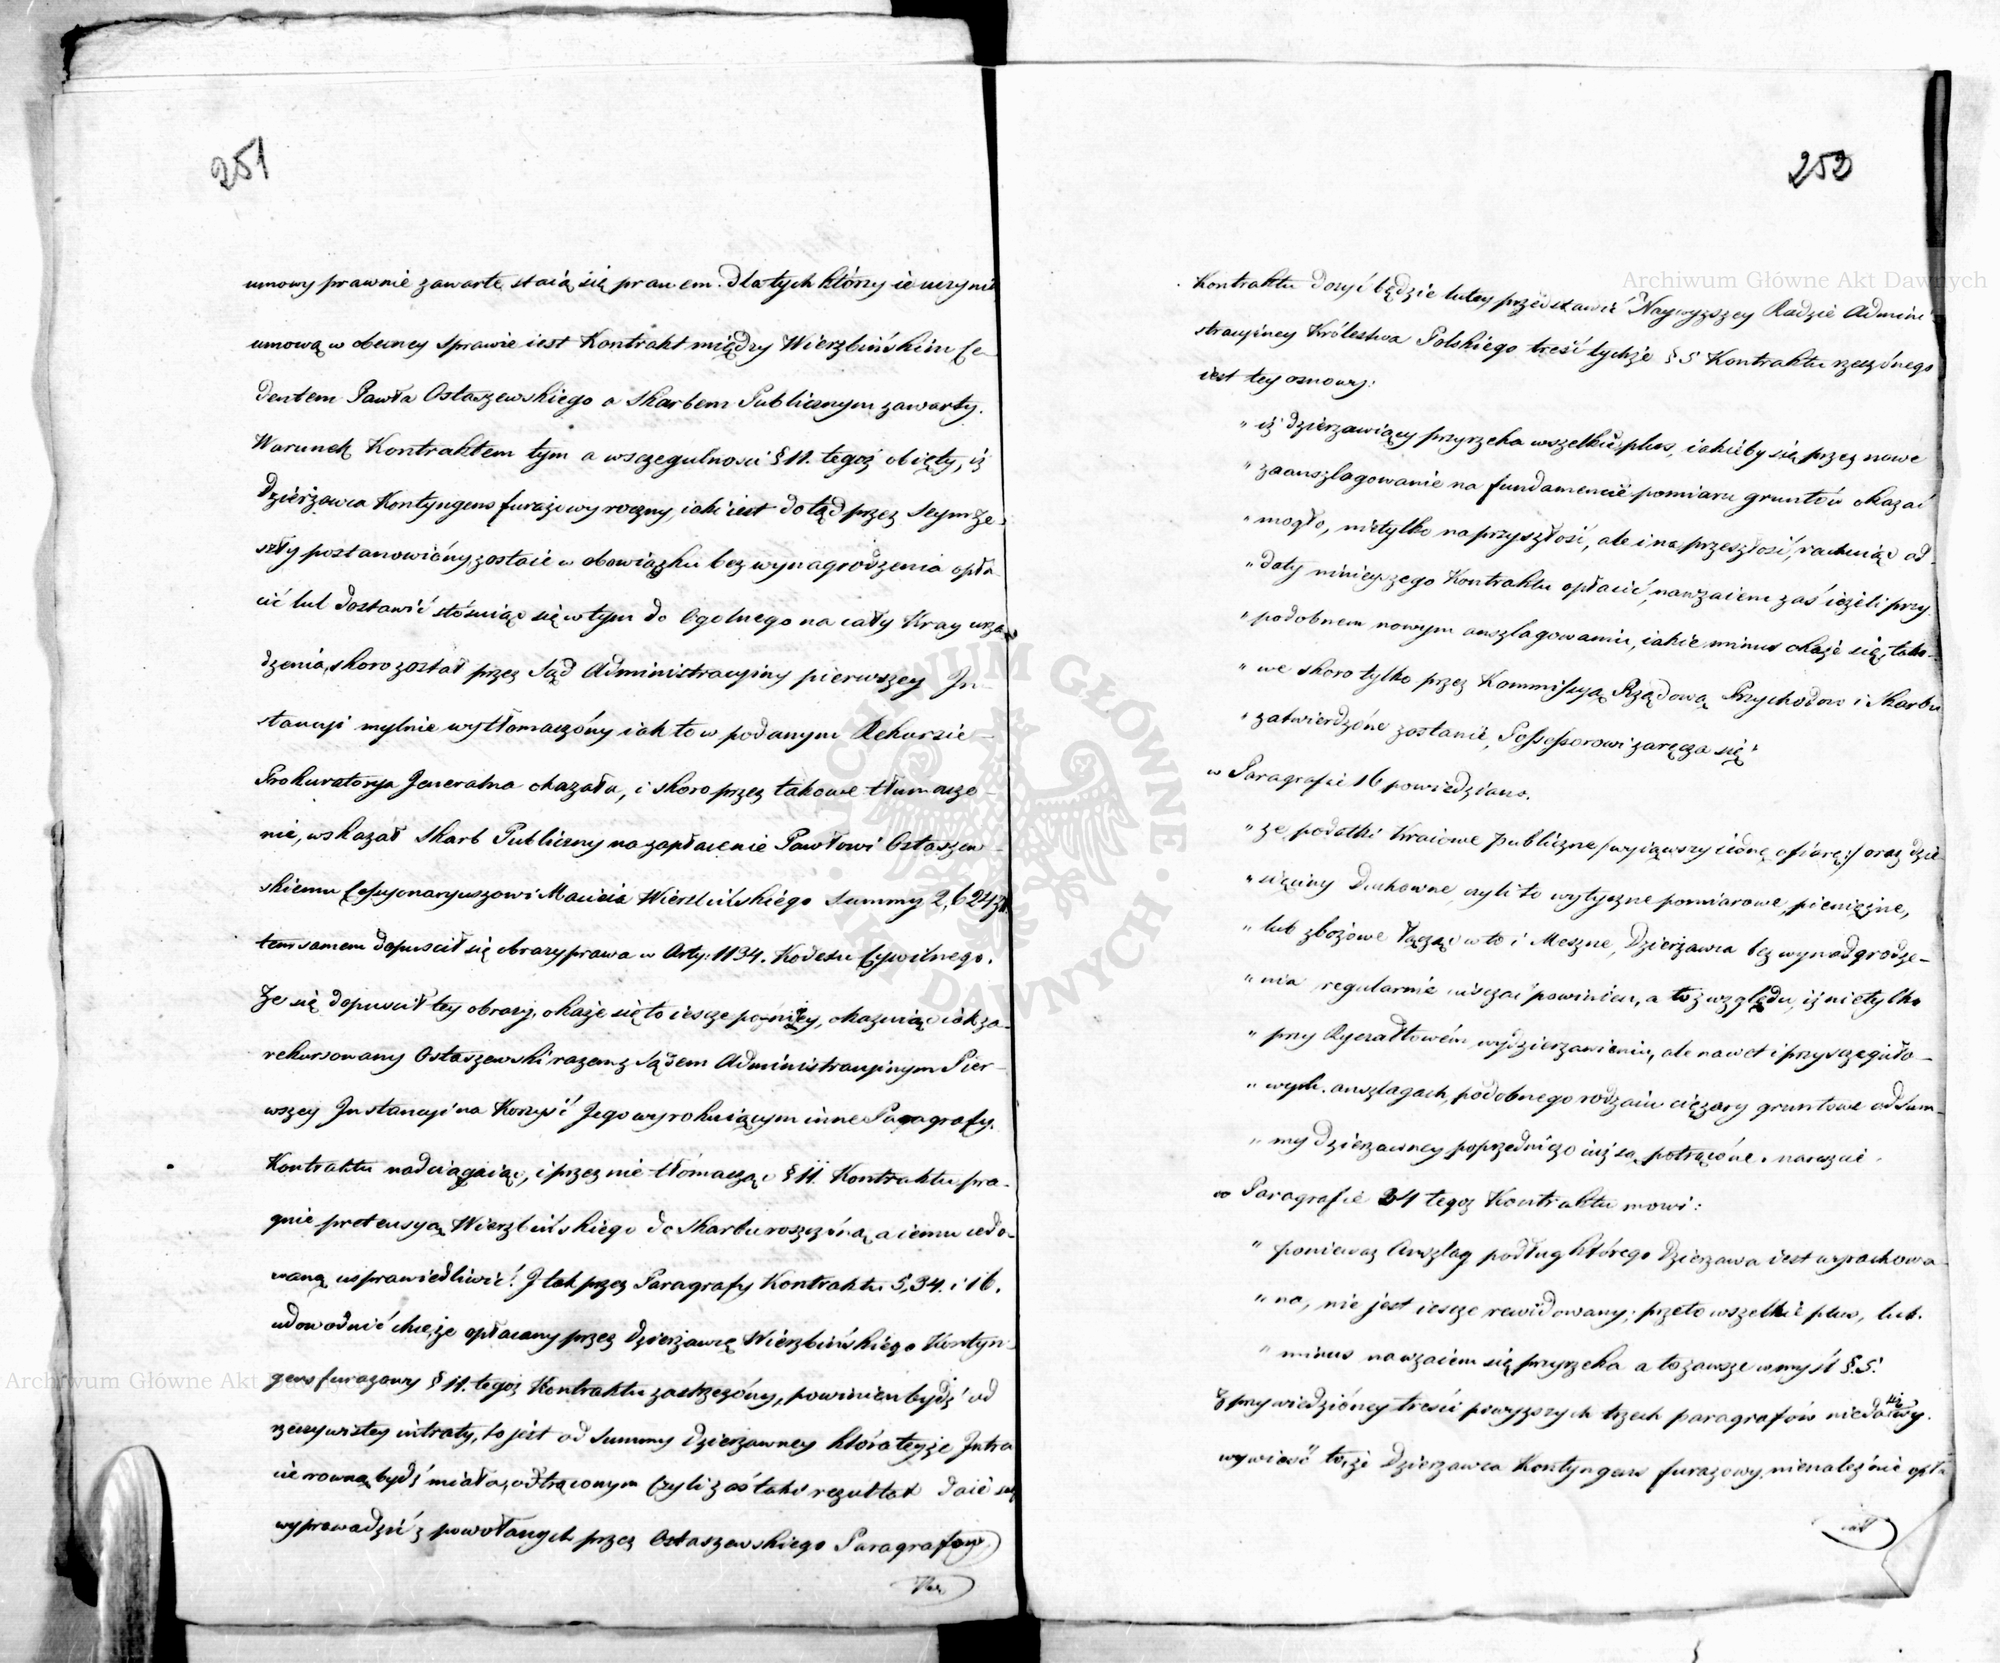 251
umowy prawnie zawarte staią się prawem dla tych którzy ie uczynili
umową w obecney sprawie iest Kontrakt między Wierzbińskim Ce-
dentem Pawła Ostaszewskiego a Skarbem Publicznym zawarty.
Warunek Kontraktem tym a wszczegulnosci § 11. tegoż obięty, iż
Dzierżawca Kontyngens furażowy roczny, iaki iest dotąd przez Seym ze-
szły postanowióny, zostaie w obowiązku bez wynagrodzenia opła-
cić lub dostawić stósuiąc się w tym do Ogolnego na cały Kray urzą-
dzenia, skoro został przez Sąd Administracyiny pierwszey In-
stancyi mylnie wytłomaczóny iak to w podanym Rekursie
Prokuratorya Jeneralna okazała, i skoro przez takowe tłumacze-
nie, wskazał Skarb Publiczny na zapłacenie Pawłowi Ostaszew-
skiemu Cessyonaryuszowi Macieia Wierzbińskiego Summy 2,624 zł.
tem samem dopuscił się obrazy prawa w Arty: 1134. Kodexu Cywilnego.
Że się dopuscił tey obrazy, okaże się to iescze poźniey, okazuiąc iak za-
rekursowany Ostaszewski razem z Sądem Administracyinym Pier-
wszey Instancyi na Korzyść Jego wyrokuiącym inne Paragrafy
Kontraktu nadciągaiąc, i przez nie tłómacząc § 11. Kontraktu pra-
gnie pretensyą Wierzbińskiego do Skarbu roszczóną, a iemu cedo-
waną usprawiedliwić. I tak przez Paragrafy Kontraktu 5, 34. i 16.
udowodnić chce, że opłacany przez Dzierżawcę Wierzbińskiego Kontyn-
gens furazowy § 11. tegoż Kontraktu zastrzeżóny, powinien bydź od
rzeczywistey intraty, to jest od Summy dzierżawney która teyże Intra-
cie rowną bydź miała, odtrąconym Czyli zaś taki rezultat daie się
wyprowadzić z powołanych przez Ostaszewskiego Paragrafow
252
Kontraktu dosyć będzie tutey przedstawić Naywyzszey Radzie Admini-
stracyiney Królestwa Polskiego treść tychże § 5 Kontraktu rzeczónego
iest tey osnowy:
" iż dzierzawiący przyrzeka wszelkie plus, iakieby się przez nowe
" zaanszlagowanie na fundamencie pomiaru gruntów okazać
" mogło, nietylko na przyszłość, ale i na przeszłość, rachuiąc od
" daty ninieyszego Kontraktu opłacić, nawzaiem zaś ieżeli przy
" podobnem nowym anszlagowaniu, iakie minus okaże się, tako-
" we skoro tylko przez Kommissyą Rządową Przychodow i Skarbu
" zatwierdzóne zostanie, Possessorowi zaręcza się"
w Paragrafie 16 powiedziano.
" ze podatki Kraiowe publiczne /wyiąwszy iedną ofiarę:/ oraz dzie-
" sięciny Duchowne, czyli to wytyczne pomiarowe, pieniężne,
" lub zbożowe łącząc w to i Meszne, Dzierżawca bez wynadgrodze-
" nia regularnie uiszczać powinien, a to z względu, iż nietylko
" przy Ryczałtowém wydzierzawieniu, ale nawet i przy szczegóło-
" wych anszlagach, podobnego rodzaiu ciężary gruntowe od Sum-
" my dzierzawney poprzedniczo iuż są potrącóne. nareszcie
w Paragrafie 34 tegoż Kontraktu mowi:
" poniewaz Anszlag podług którego Dzierzawa iest wyrachowa-
" na, nie jest iescze rewidowany; przeto wszelkie plus, lub
" minus nawzaiem się przyrzeka a to zawsze w myśl § 5.
Z przywiedzióney treści powyższych trzech paragrafów nieda się
wywieść to, iż Dzierzawca Kontyngens furazowy nienależnie opła-
cał